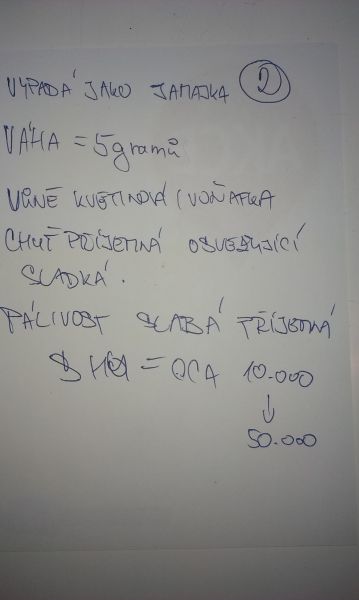 VYPADÁ JAKO JAMAJKA 2
VÁHA = 5 gramů
VŮNĚ KVĚTINOVÁ / VOŇAVKA
CHUŤ PŘÍJEMNÁ OSVĚŽUJÍCÍ
SLADKÁ.
PÁLIVOST SLABÁ PŘÍJEMNÁ
SHU = OCA 10.000
↓
50.000